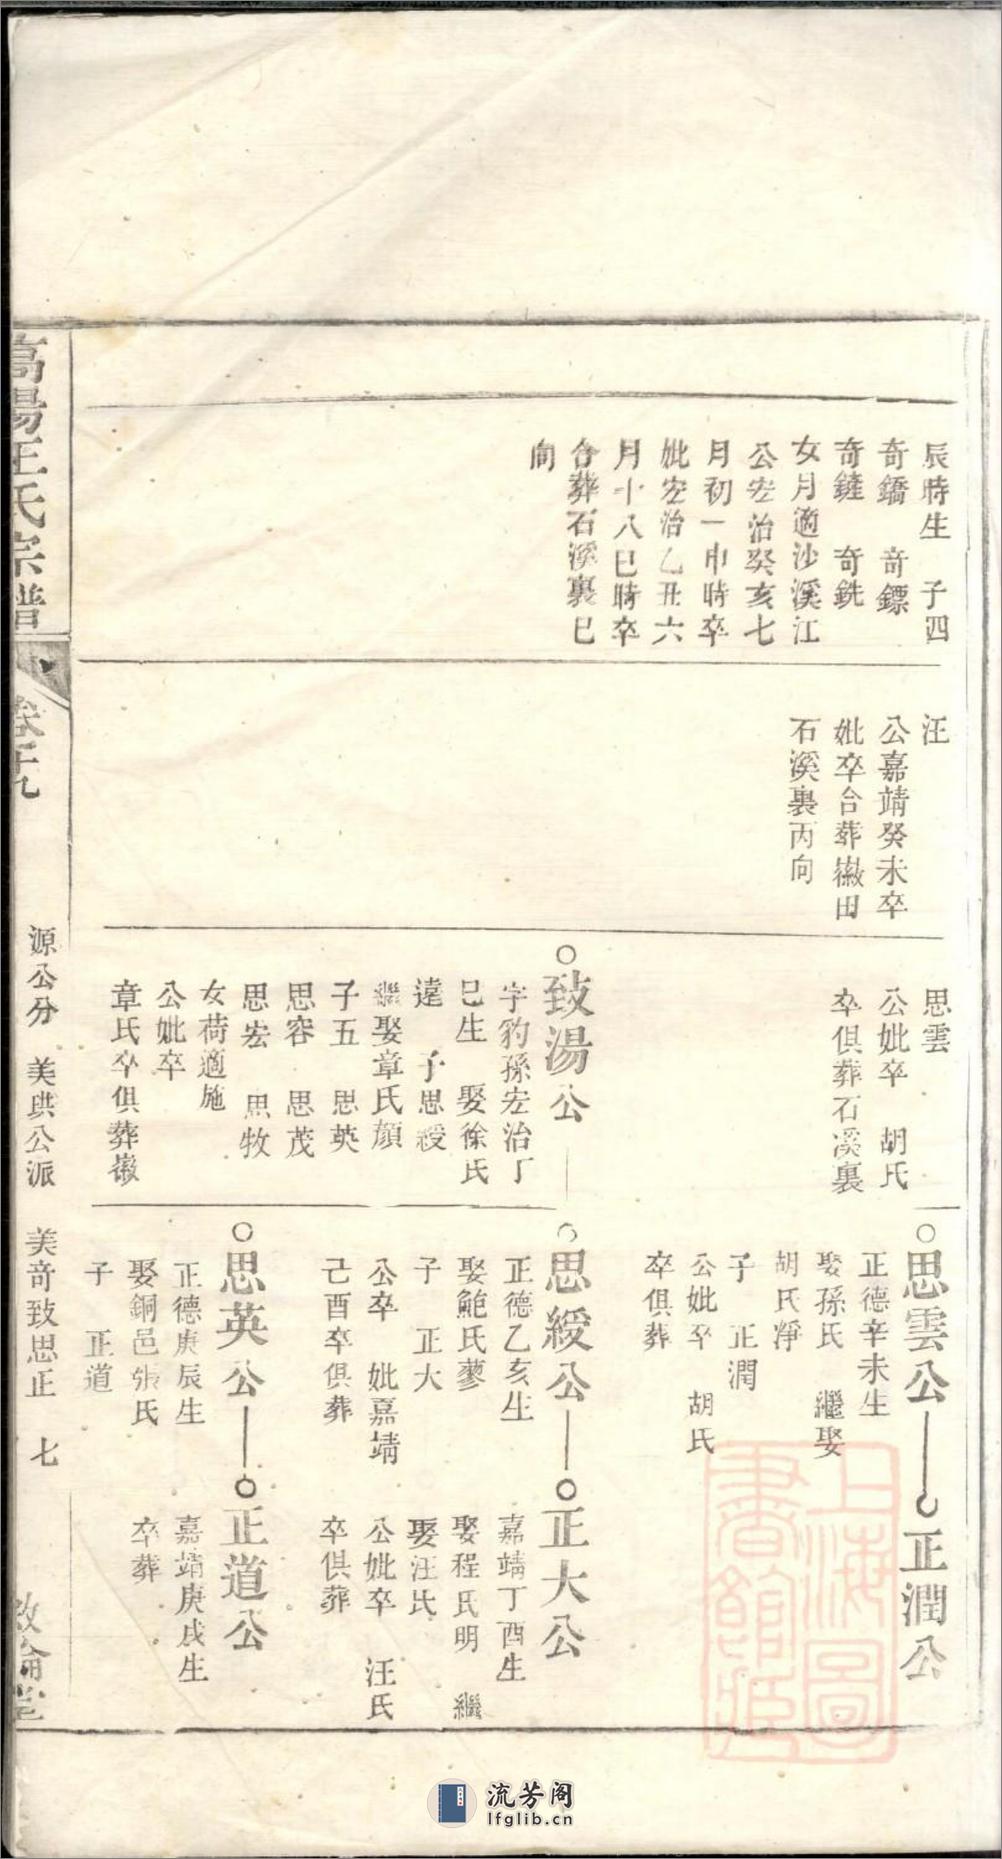 辰時生　子四
奇鐈　奇鏢
奇鏟　奇銑
女月適沙溪江
公宏治癸亥七
月初一申時卒
妣宏治乙丑六
月十八巳時卒
合葬石溪裏巳
向
汪
公嘉靖癸未卒
妣卒合葬徽田
石溪裏丙向
思雲
公妣卒　胡氏
卒俱葬石溪裏
致湯公
字豹孫宏治丁
巳生　娶徐氏
達　子思綬
繼娶章氏顏
子五　思英
思容　思茂
思宏　思牧
女荷適施
公妣卒
章氏卒俱葬徽
思雲公
正德辛未生
娶孫氏　繼娶
胡氏淨
子　正潤
公妣卒　胡氏
卒俱葬
正潤公
思綬公
正德乙亥生
娶鮑氏蓼
子　正大
公卒　妣嘉靖
己酉卒俱葬
正大公
嘉靖丁酉生
娶程氏明　繼
娶汪氏
公妣卒　汪氏
卒俱葬
思英公
正德庚辰生
娶銅邑張氏
子　正道
正道公
嘉靖庚戌生
卒葬
高陽王氏宗譜
卷
源公分　美珙公派　美奇致思正　七
敘倫堂
上海圖
書館藏
流芳阁
lfglib.cn